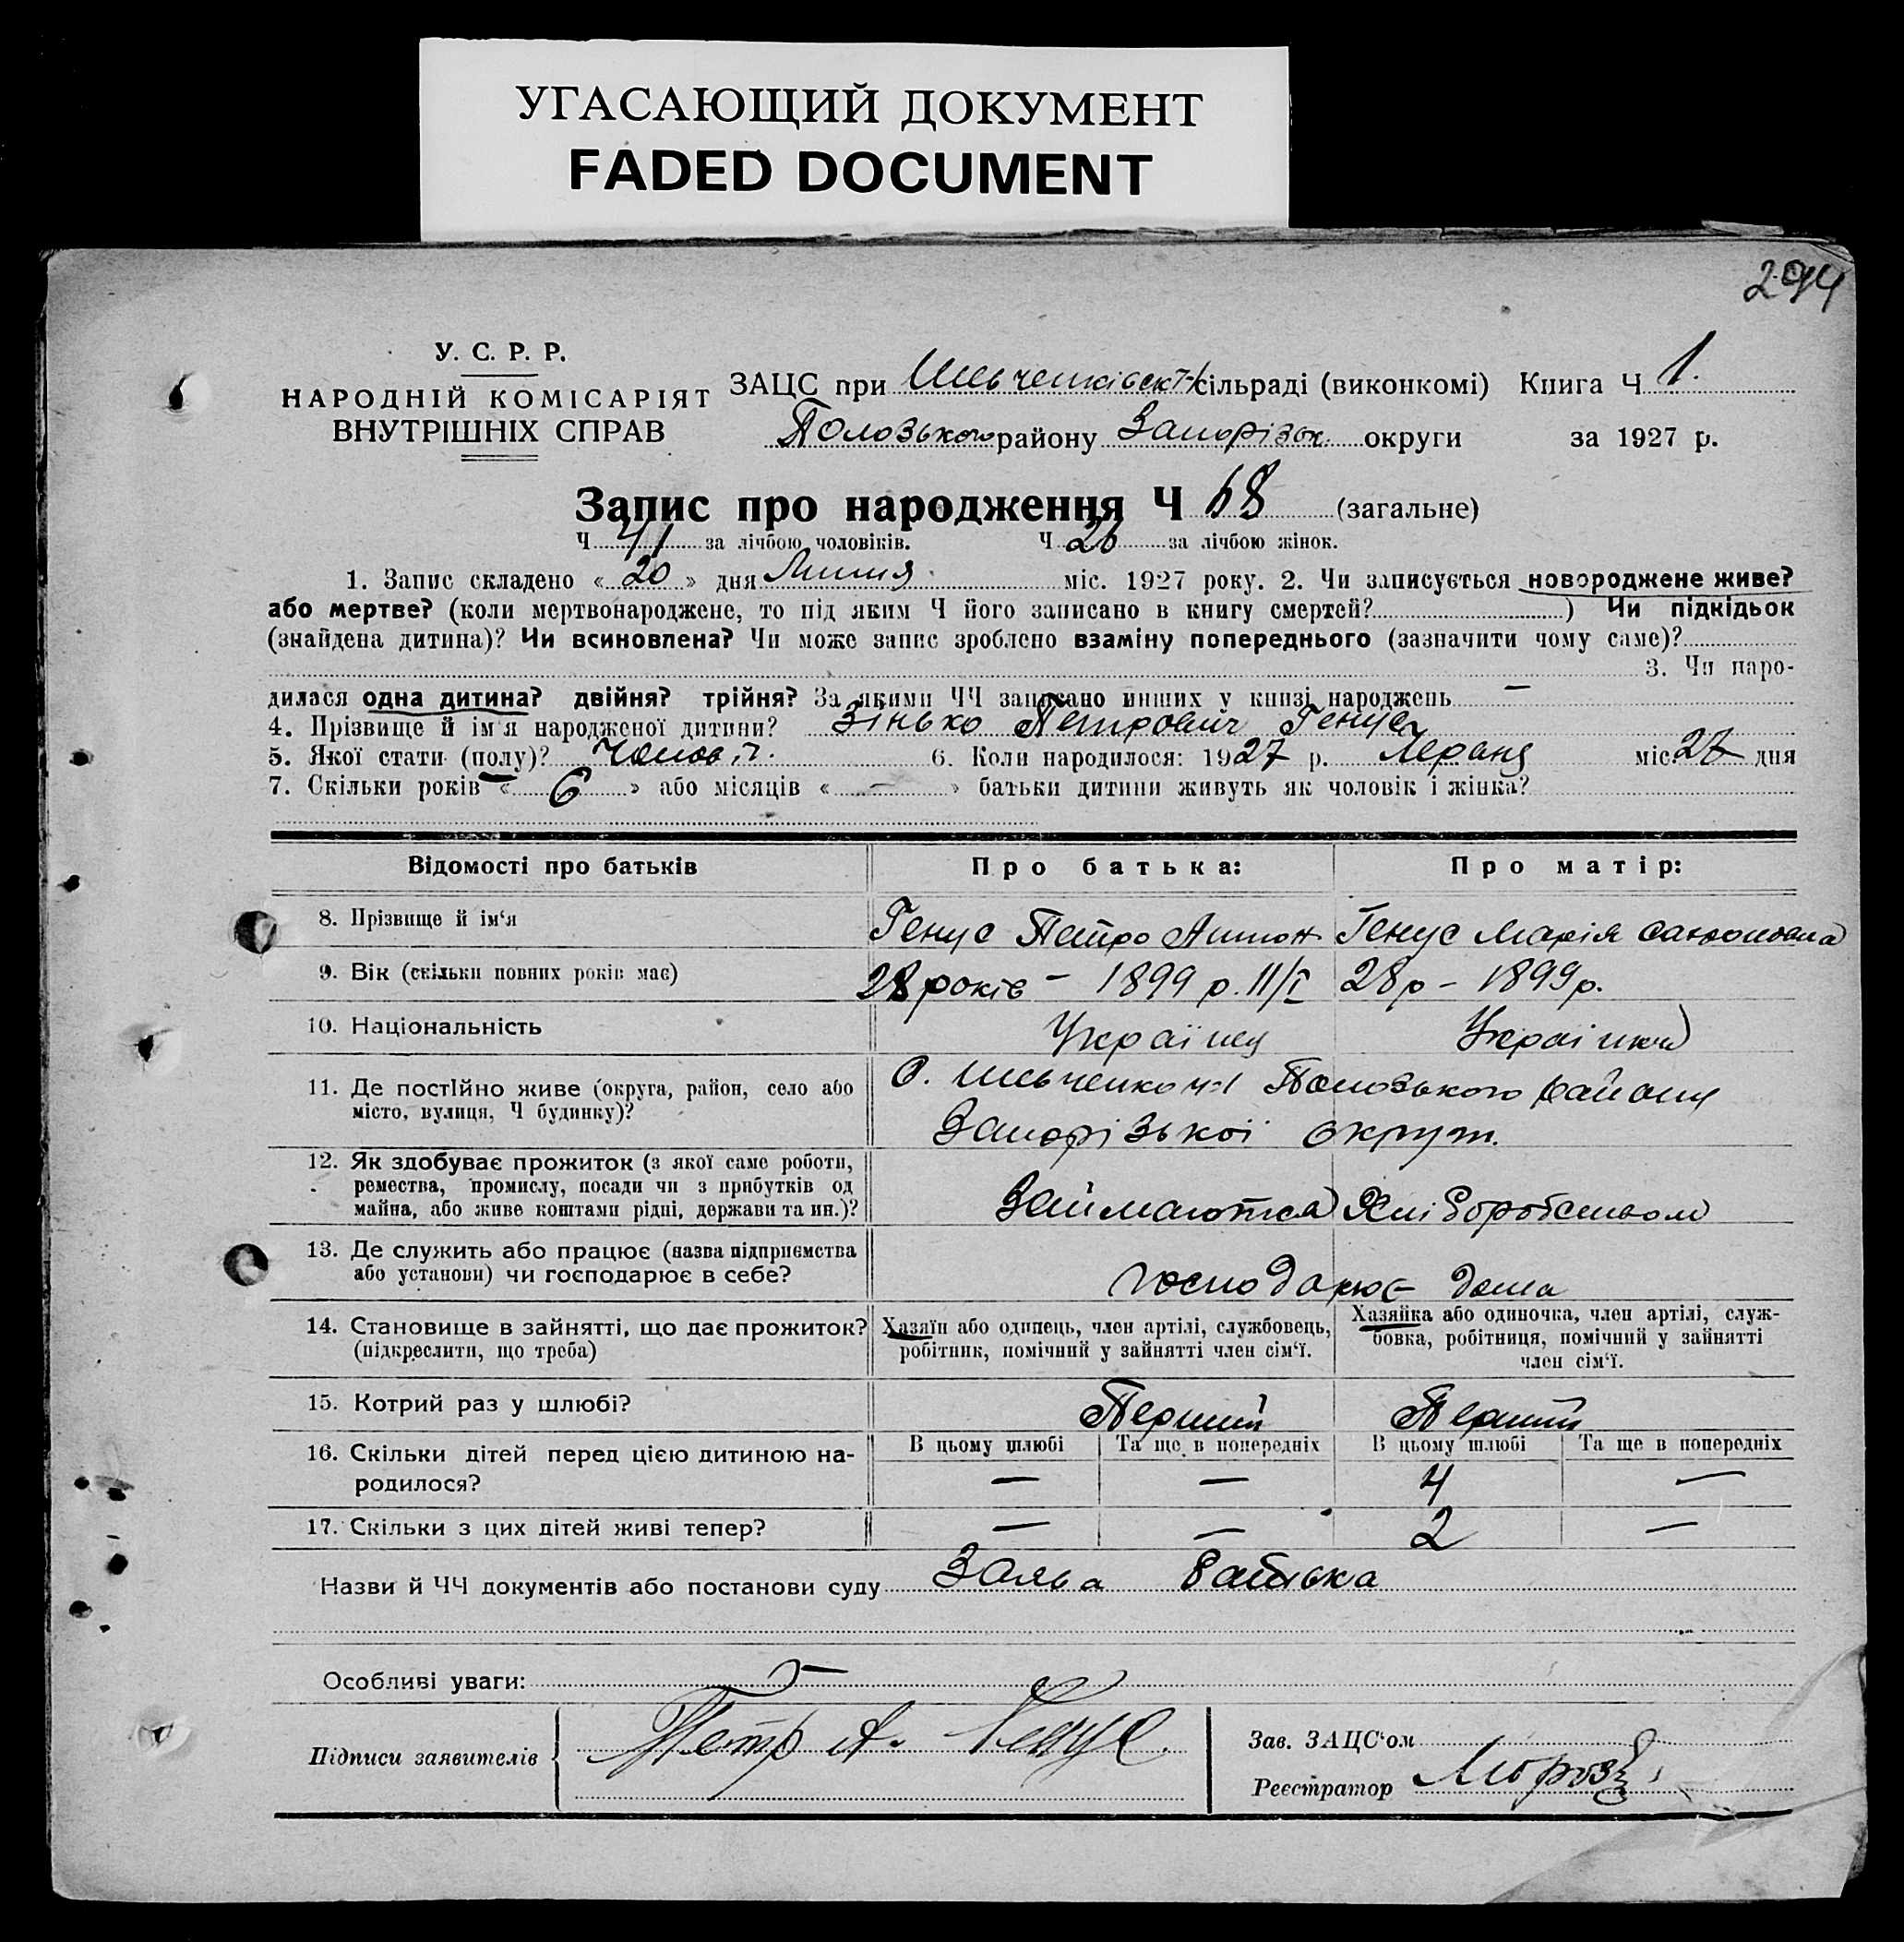 УГАСАЮЩИЙ ДОКУМЕНТ
FADED DOCUMENT
294
У. С. Р. Р.
НАРОДНІЙ КОМІСАРІЯТ
ВНУТРІШНІХ СПРАВ
ЗАЦС при сільраді (виконкомі) Книга Ч 1.
Полозького району Запорізьк. округи за 1927 р.
Запис про народження Ч 68 (загальне)
Ч 41 за лічбою чоловіків. Ч 26 за лічбою жінок.
1. Запис складено « 20 » дня Липня міс. 1927 року. 2. Чи записується новороджене живе?
або мертве? (коли мертвонароджене, то під яким Ч його записано в книгу смертей? ) Чи підкідьок
(знайдена дитина)? Чи всиновлена? Чи може запис зроблено взаміну попереднього (зазначити чому саме)?
3. Чи наро-
дилася одна дитина? двійня? трійня? За якими ЧЧ записано инших у книзі народжень —
4. Прізвище й ім'я народженої дитини? Зінько Петрович Генус
5. Якої стати (полу)? 6. Коли народилося: 1927 р. міс. 27 дня
7. Скільки років « 6 » або місяців « — » батьки дитини живуть як чоловік і жінка?
Відомості про батьків Про батька: Про матір:
8. Прізвище й ім'я Генус Петро Антон Генус Марія
9. Вік (скільки повних років має) 28 років – 1899 р. 11/I 28 р – 1899 р.
10. Національність Українец Українка
11. Де постійно живе (округа, район, село або
місто, вулиця, Ч будинку)?
Полозького району
Запорізькоі округи.
12. Як здобуває прожиток (з якої саме роботи,
ремества, промислу, посади чи з прибутків од
майна, або живе коштами рідні, держави та ин.)?
Займаются Хліборобством
13. Де служить або працює (назва підприємства
або установи) чи господарює в себе?
господарює дома
14. Становище в зайнятті, що дає прожиток?
(підкреслити, що треба)
Хазяїн або одинець, член артілі, службовець,
робітник, помічний у зайнятті член сім'ї.
Хазяйка або одиночка, член артілі, служ-
бовка, робітниця, помічний у зайнятті
член сім'ї.
15. Котрий раз у шлюбі? Перший Перший
16. Скільки дітей перед цією дитиною на-
родилося?
В цьому шлюбі Та ще в попередніх В цьому шлюбі Та ще в попередніх
— — 4 —
17. Скільки з цих дітей живі тепер? — — 2 —
Назви й ЧЧ документів або постанови суду Заява батька
Особливі уваги:
Підписи заявителів Петр А. Генус.
Зав. ЗАЦС'ом
Реєстратор Мороз